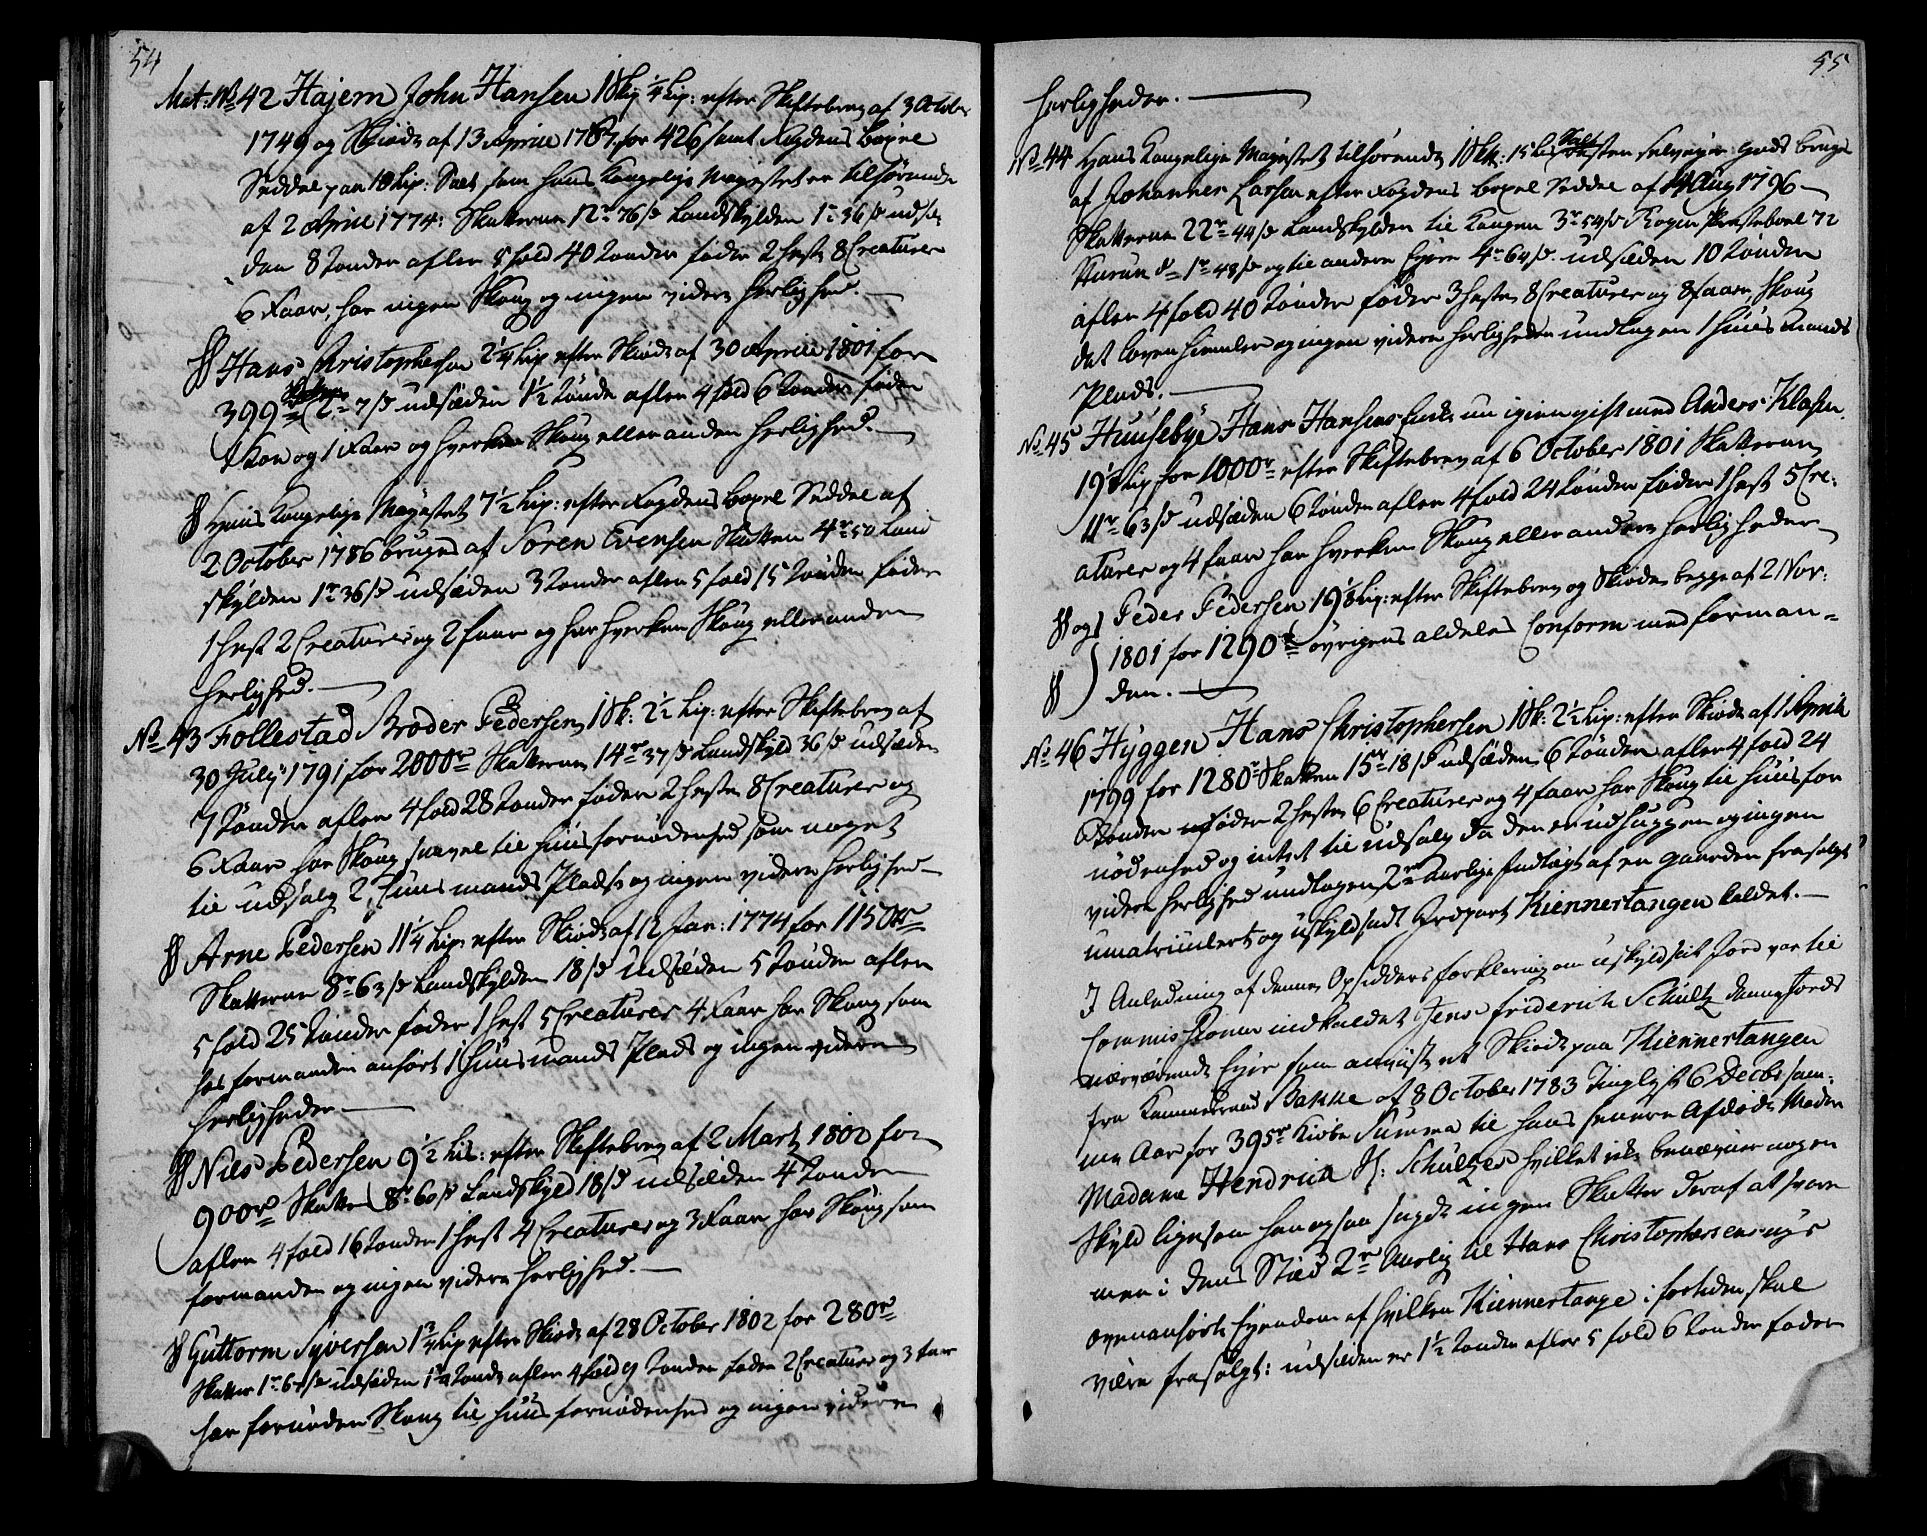 54
Mat: No 42 Hajem John Hansen 1 Skp ¼ Lip: efter Skiftebrev af 3 October
1749 og Skiøde af 13 Aprill 1787 for 426 samt Fogdens Bøxel
Seddel paa 10 Lip: Salt som Hans Kongelige Mayestet er tilhørende
af 2 Aprill 1774: Skatterne 12r 76 s Landskylden 1r 36 s udsæ-
den 8 Tønder afler 5 fold 40 Tønder føder 2 Heste 8 Creaturer
6 Faar, har ingen Skoug og ingen videre Herlighed. —
§ Hans Christophersen 2¼ Lip efter Skiøde af 30 Aprill 1801 for
399r Skatten 2r 7 s udsæden 1½ Tønde afler 4 fold 6 Tønder føder
1 Koe og 1 Faar og hverken Skoug eller anden Herlighed. —
§ Hans Kongelige Mayestet 7½ Lip: efter Fogdens Bøxel Seddel af
2 October 1786 bruges af Søren Evensen Skatten 4r 50 Land
skylden 1r 36 s udsæden 3 Tønder afler 5 fold 15 Tønder føder
1 Hest 2 Creaturer og 2 faar og har hverken Skoug eller anden
Herlighed. —
No 43 Follestad Broder Pedersen 1 Sk: 2½ Lip: efter Skiftebrev af
30 July 1791 for 2000r Skatterne 14r 37 s Landskyld 36 s udsæden
7 Tønder afler 4 fold 28 Tønder føder 2 Heste 8 Creaturer og
6 Faar har Skoug saavel til Huus fornødenhed som noget
til udsalg 2 Huusmands Pladse og ingen videre Herlighed —
§ Arne Pedersen 11¼ Lip: efter Skiøde af 12 Jan: 1774 for 1150r
Skatterne 8r 63 s Landskylden 18 s Udsæden 5 Tønder afler
5 fold 25 Tønder føder 1 Hest 5 Creaturer 4 Faar har Skoug som
hos formanden anført 1 Huusmands Plads og ingen videre
Herligheder —
§ Niels Pedersen 9½ Lis: efter Skiftebrev af 2 Martz 1802 for
900r Skatten 8r 60 s Landskyld 18 s udsæden 4 Tønder
afler 4 fold 16 Tønder 1 Hest 4 Creaturer og 3 Faar har Skoug som
formanden og ingen videre Herlighed. —
§ Guttorm Syversen 1¾ Lip efter Skiøde af 28 October 1802 for 280r
Skatter 1r 67 s udsæden 1¼ Tønde afler 4 fold 9 Tønder føder 2 Creaturer og 3 faar
har fornøden Skoug til Huus fornødenhed og ingen videre
55
Herligheder. —
No 44 Hans Kongelige Mayestet tilhørende 1 Sk: 15 Lis Salt resten selveyer Gods bruges
af Johannes Larsen efter Fogdens Bøxel Seddel af 14 Aug 1796 —
Skatterne 22r 44 s Landskylden til Kongen 3r 54 s Røgen Præsteboel 72
Hurum d— 1r 48 s og til andere Eyere 4r 64 s udsæden 10 Tønder
afler 4 fold 40 Tønder føder 3 Heste 8 Creaturer og 8 faar, Skoug
det loven himler og ingen videre Herligheder undtagen 1 Huusmands
Plads. —
No 45 Huusebye Hans Hansens Enke nu igien gift med Anders Klasen
19⅛ Lip for 1000r efter Skiftebrev af 6 October 1801 Skatterne
11r 63 s udsæden 6 Tønder afler 4 fold 24 Tønder føder 1 Hest 5 Cre:
aturer og 4 faar har hverken Skoug eller andere Herligheder
§ og § Peder Pedersen 19⅛ Lip: efter Skiftebrev og Skiøde begge af 2 Nov:
1801 for 1290r øvrigens aldeles Conform med forman=
den. —
No 46 Hyggen Hans Christophersen 1 Sk: 2½ Lip: efter Skiøde af 1 Aprill
1799 for 1280r Skatten 15r 18 s udsæden 6 Tønder afler 4 fold 24
Tønder føder 2 Heste 6 Creaturer og 4 faar har Skoug til Huus for
nødenhed og intet til udsalg da den er udhuggen og ingen
videre Herlighed undtagen 2r aarlige Indtægt af en gaarden frasolgt
umatriculeret og uskyldsadt Jordpart Kiennertangen kaldet. —
I Anledning af denne Opsidders forklaring om uskyldsat Jord var til
Commissionen indkaldet Jens Friderich Schultz denne Jords
nærværende Eyer som anviiste et Skiøde paa Kiennertangen
fra Kammerraad Bakke af 8 October 1783 Tinglyst 6 Decbr sam:
me Aar for 395r Kiøbe Summa til hans senere Afdøde Moder
Madame Hendrich H: Schultzes hvilket ike benævner nogen
Skyld ligesom han ogsaa sagde ingen Skatter deraf at svare
men i dens Sted 2r Aarlig til Hans Christophersens nys
ovenanførte Eyendom af hvilken Kiennertange i fortiden skal
være frasolgt: udsæden er 1½ Tønder afler 5 fold 6 Tønder føder